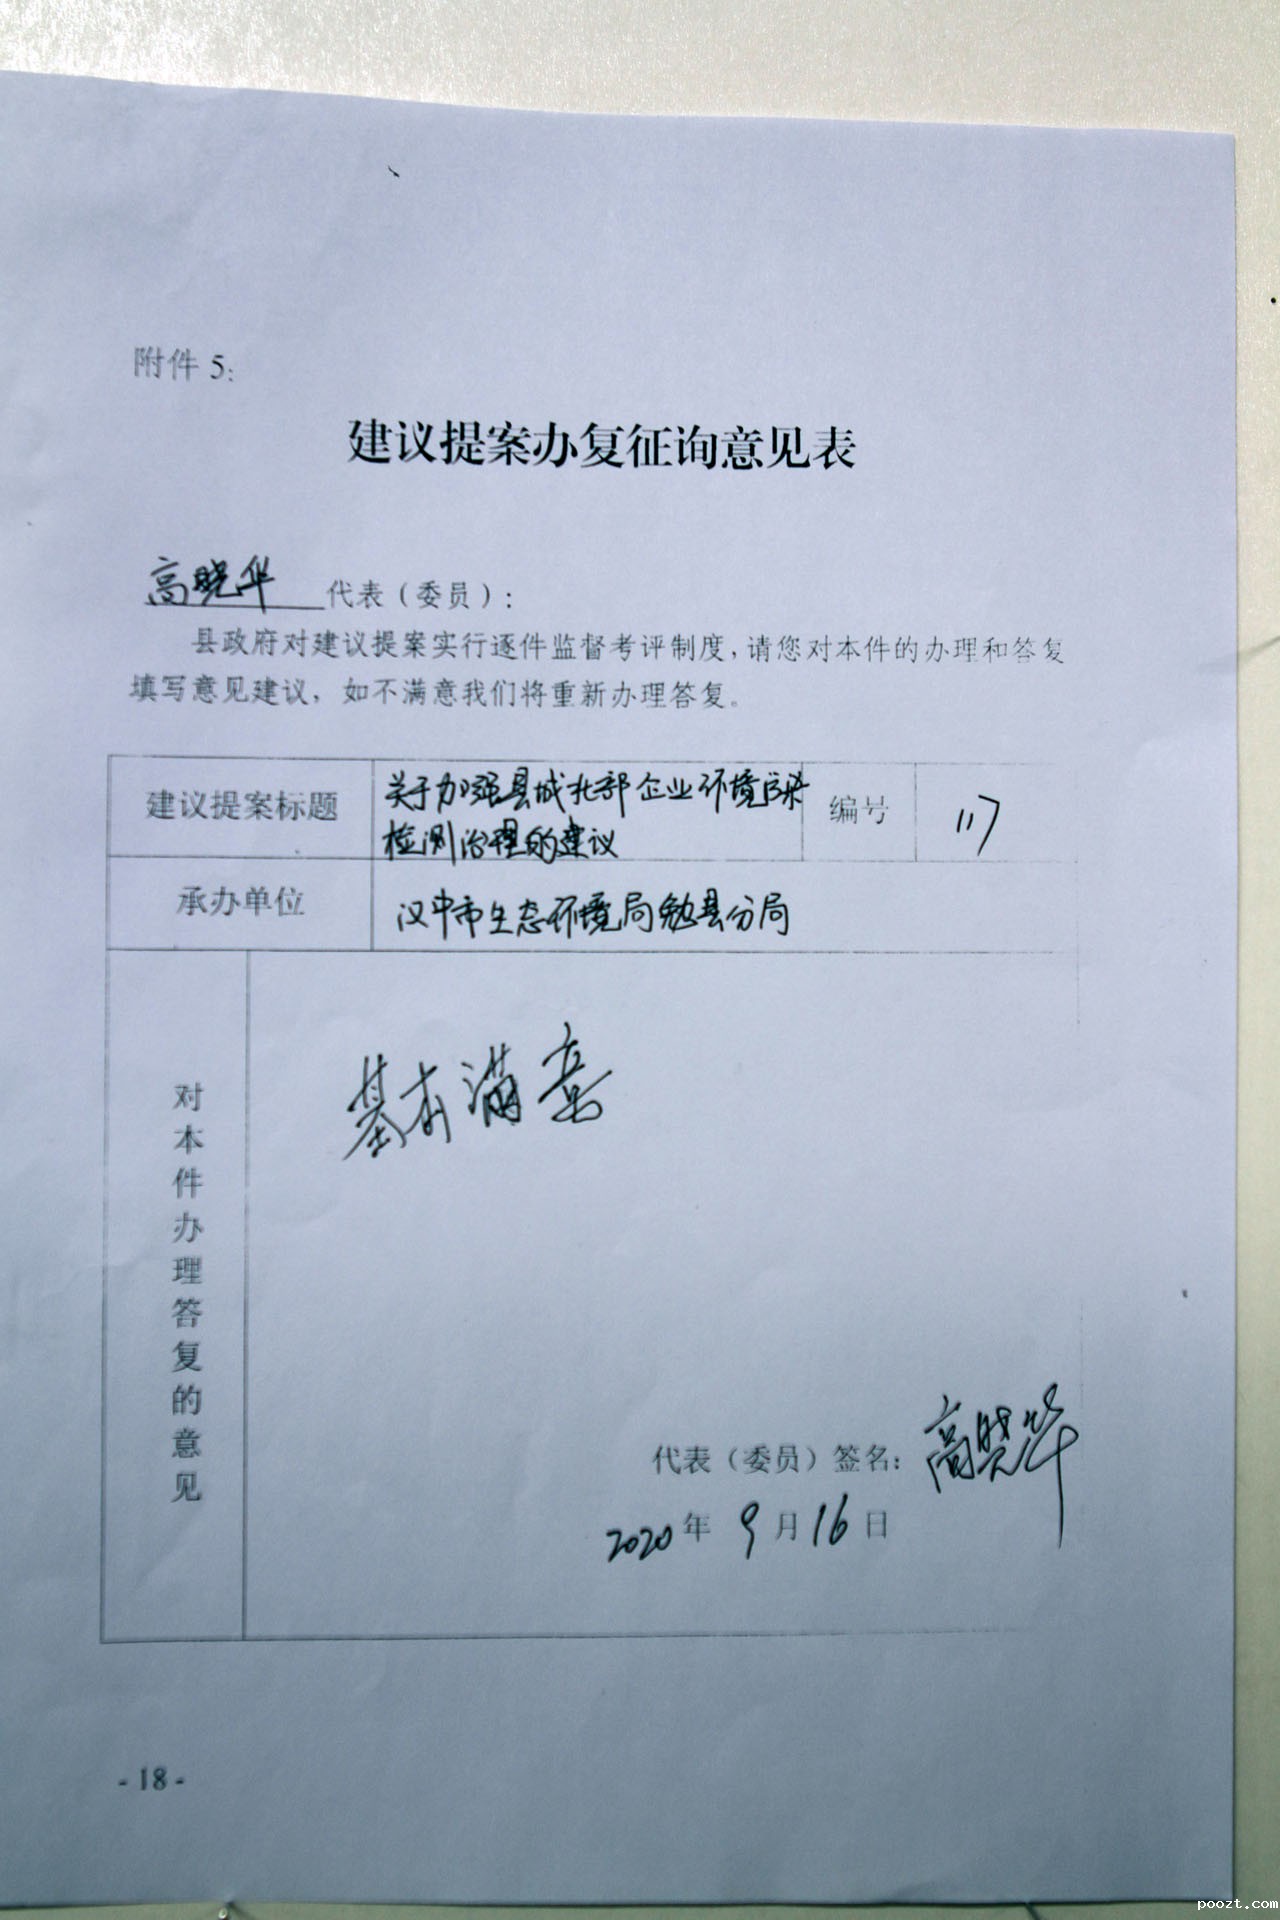 附件 5:
建议提案办复征询意见表
高晓华 代表（委员）:
县政府对建议提案实行逐件监督考评制度,请您对本件的办理和答复
填写意见建议，如不满意我们将重新办理答复。
建议提案标题
关于加强县城北部企业环境污染
检测治理的建议
编号
117
承办单位
汉中市生态环境局勉县分局
对本件办理答复的意见
基本满意
代表（委员）签名: 高晓华
2020 年 9 月 16 日
- 18 -
poozt.com